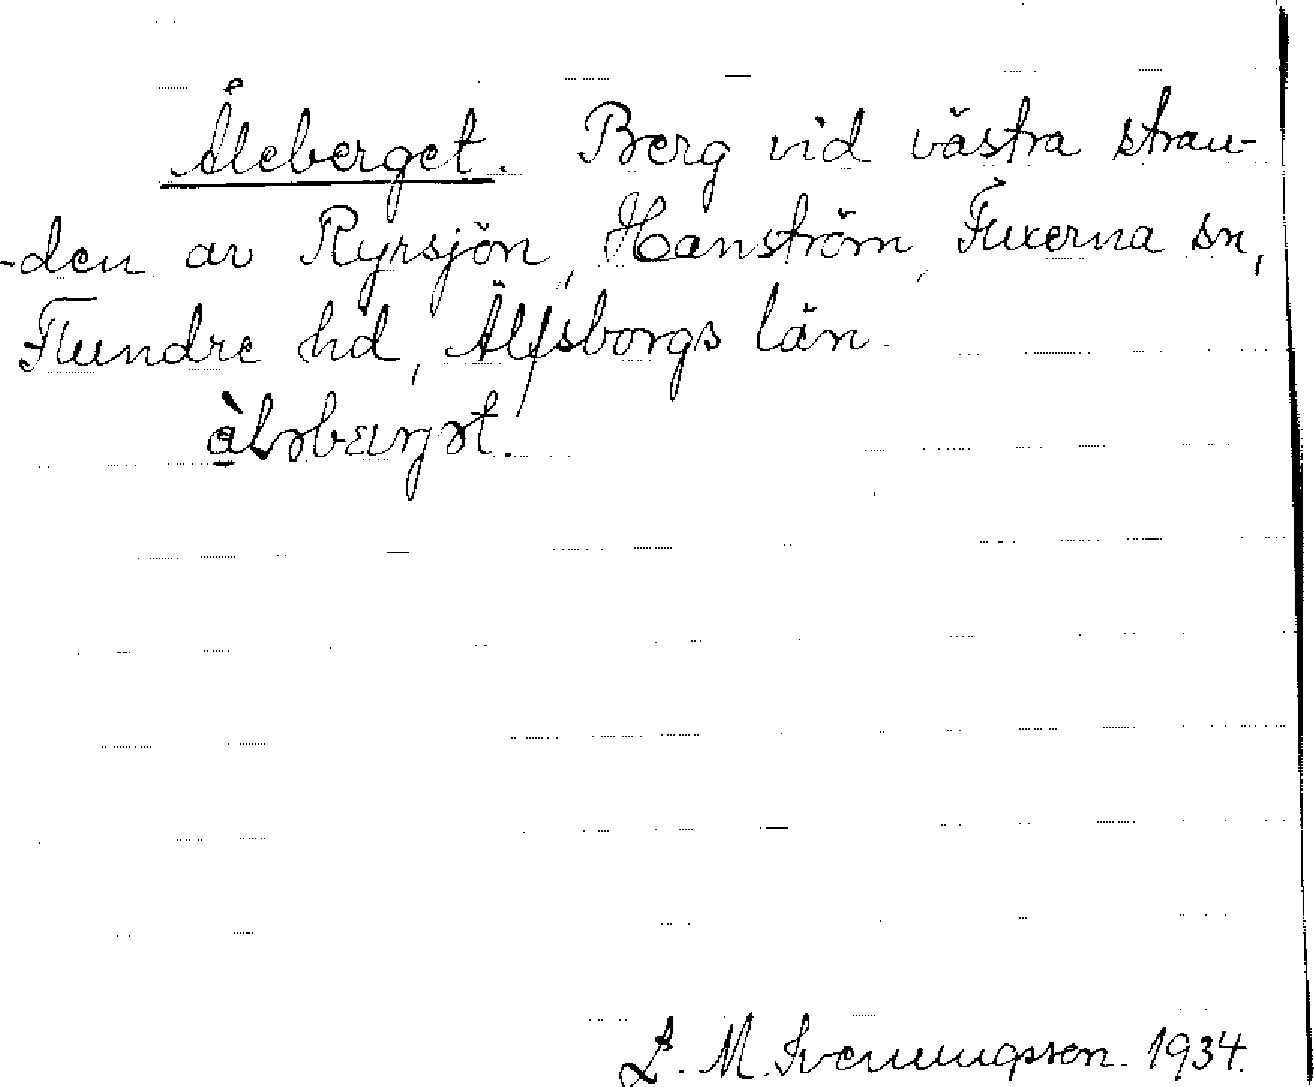 Åleberget. Berg vid västra stran-
-den av Ryrsjön, Hanström, Fuxerna sn,
Flundre hd, Älfsborgs län.
L. M. Svenungsson. 1934.